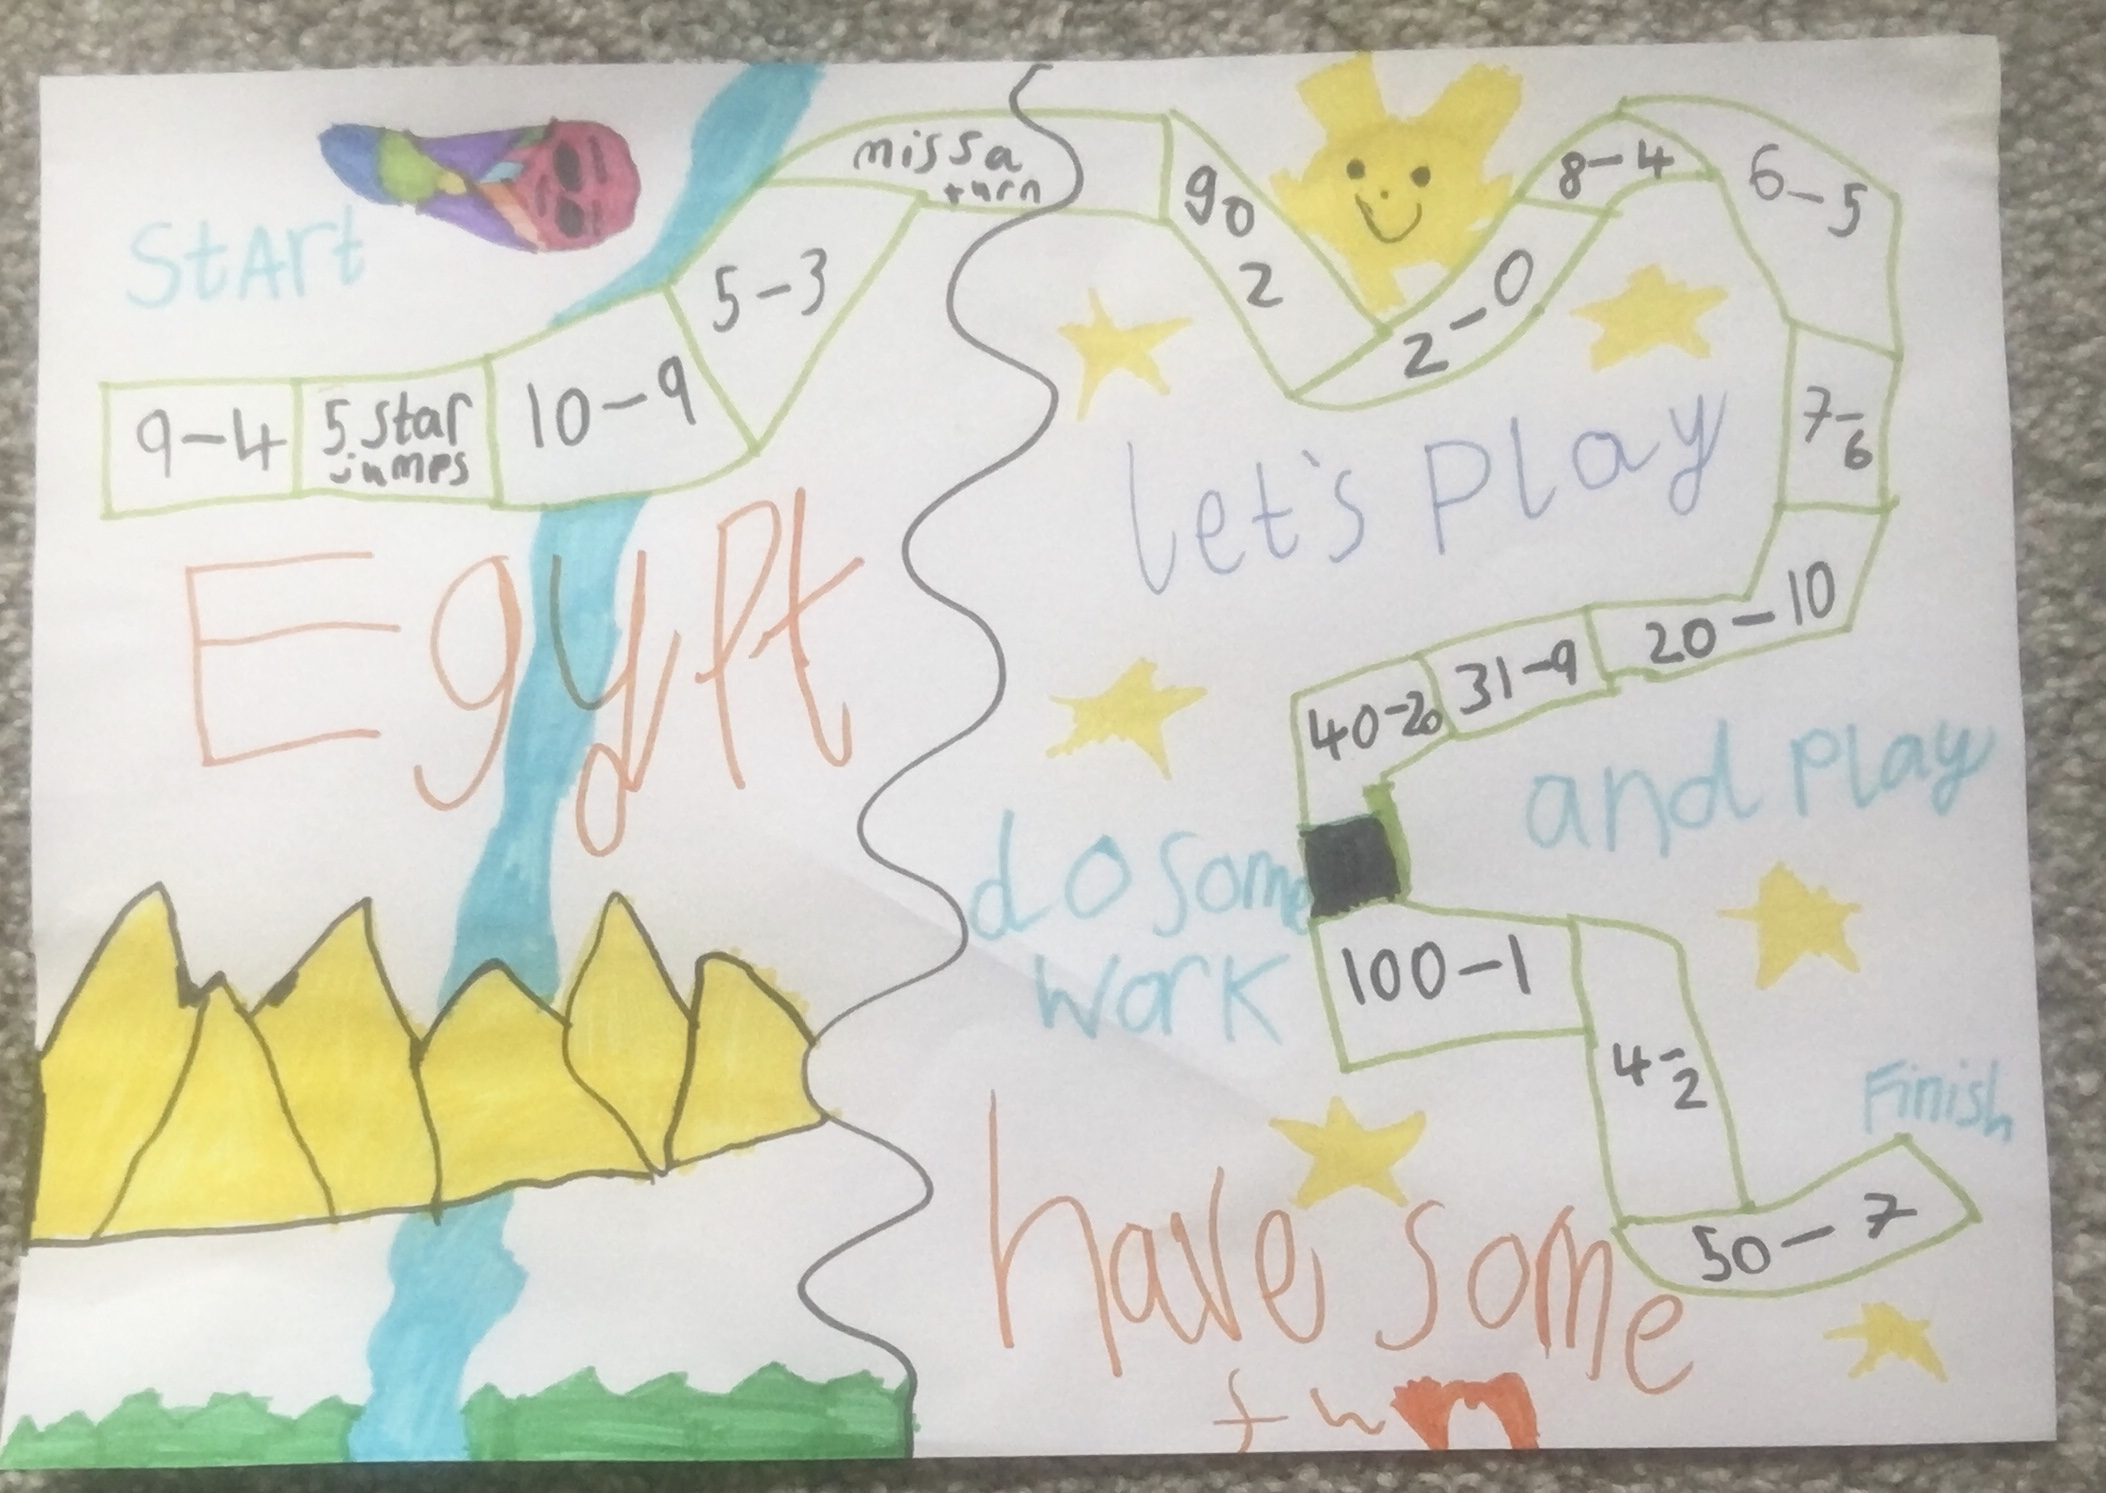 Start
9-4
5 star
jumps
10-9
5-3
miss a
turn
go
2
2-0
8-4
6-5
7-
6
20-10
31-9
40-20
100-1
4-
2
50-7
Finish
Egypt
let's play
and play
do some
work
have some
fun